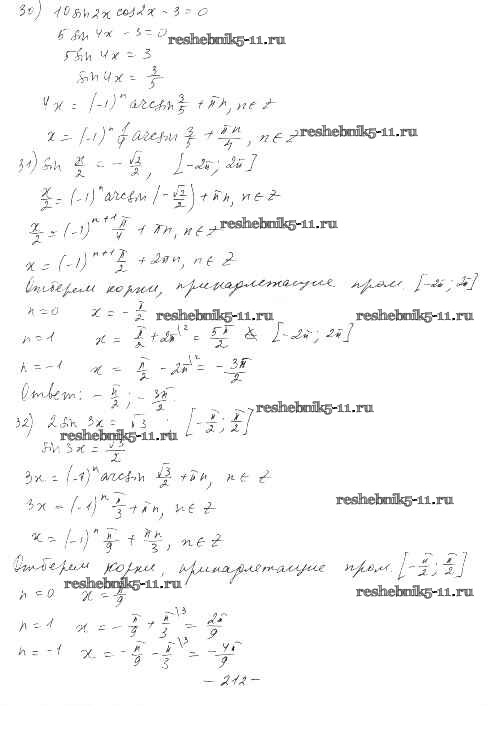 30) 10 sin 2x cos 2x - 3 = 0
5 sin 4x - 3 = 0
reshebnik5-11.ru
5 sin 4x = 3
sin 4x = 3/5
4x = (-1)^n arcsin 3/5 + πn, n ∈ Z
x = (-1)^n 1/4 arcsin 3/5 + πn/4, n ∈ Z reshebnik5-11.ru
31) sin x/2 = - √2/2, [-2π; 2π]
x/2 = (-1)^n arcsin (- √2/2) + πn, n ∈ Z
x/2 = (-1)^(n+1) π/4 + πn, n ∈ Z reshebnik5-11.ru
x = (-1)^(n+1) π/2 + 2πn, n ∈ Z
Отберем корни, принадлежащие пром. [-2π; 2π]
n = 0 x = - π/2 reshebnik5-11.ru reshebnik5-11.ru
n = 1 x = π/2 + 2π^\2 = 5π/2 ∉ [-2π; 2π]
n = -1 x = π/2 - 2π^\2 = - 3π/2
Ответ: - π/2; - 3π/2.
reshebnik5-11.ru
32) 2 sin 3x = √3 ; [- π/2; π/2]
reshebnik5-11.ru
sin 3x = √3/2
3x = (-1)^n arcsin √3/2 + πn, n ∈ Z
reshebnik5-11.ru
3x = (-1)^n π/3 + πn, n ∈ Z
x = (-1)^n π/9 + πn/3, n ∈ Z
Отберем корни, принадлежащие пром. [- π/2; π/2]
reshebnik5-11.ru reshebnik5-11.ru
n = 0 x = π/9
n = 1 x = - π/9 + π/3^\3 = 2π/9
n = -1 x = - π/9 - π/3^\3 = - 4π/9
- 212 -